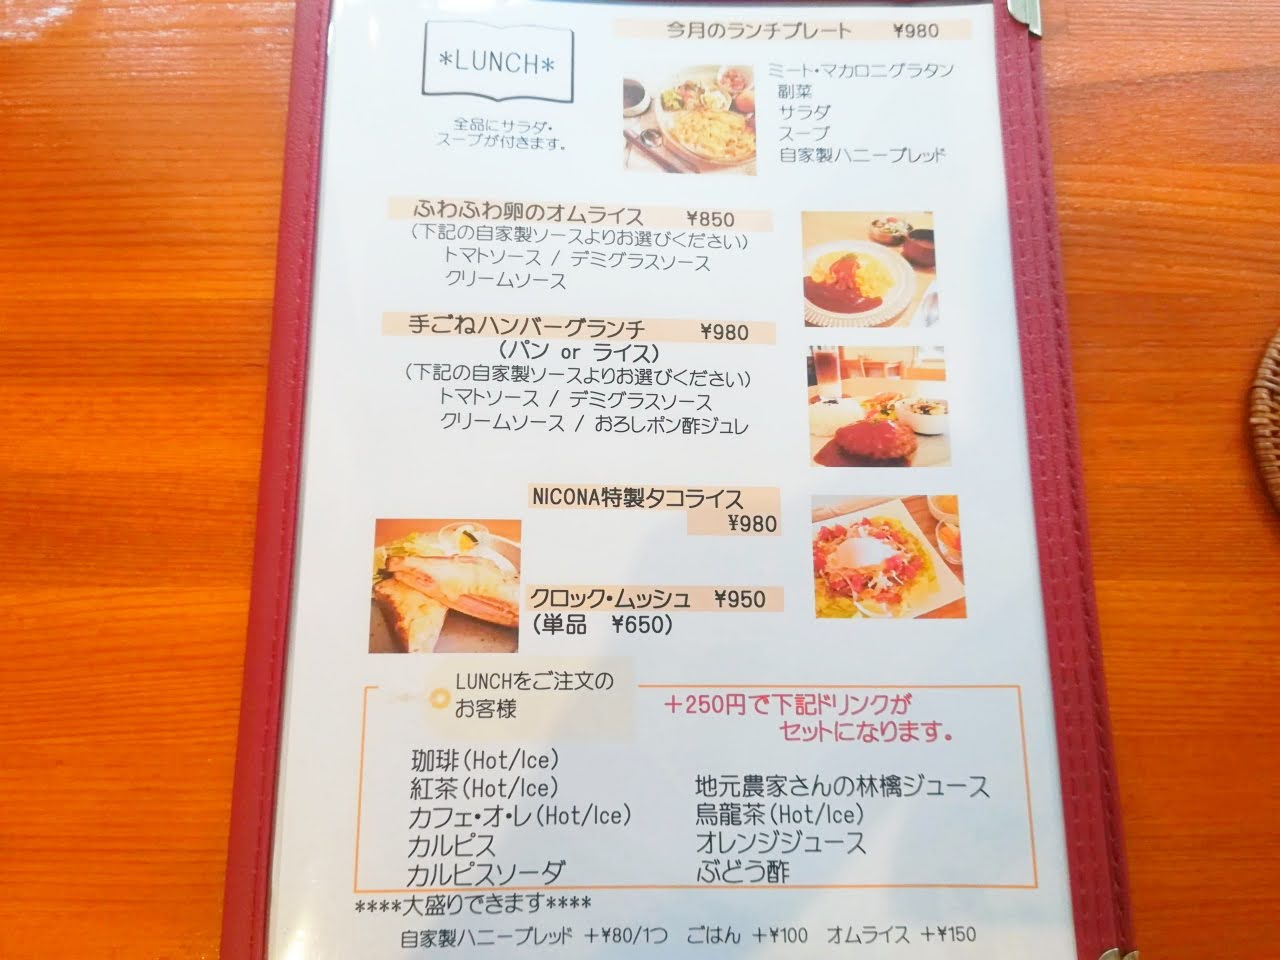 *LUNCH*
全品にサラダ・
スープが付きます。
今月のランチプレート ¥980
ミード・マカロニグラタン
副菜
サラダ
スープ
自家製ハニーブレッド
ふわふわ卵のオムライス ¥850
(下記の自家製ソースよりお選びください)
トマトソース / デミグラスソース
クリームソース
手ごねハンバーグランチ ¥980
(パン or ライス)
(下記の自家製ソースよりお選びください)
トマトソース / デミグラスソース
クリームソース / おろしポン酢ジュレ
NICONA特製タコライス
¥980
クロック・ムッシュ ¥950
(単品 ¥650)
LUNCHをご注文の
お客様
+250円で下記ドリンクが
セットになります。
珈琲(Hot/Ice)
紅茶(Hot/Ice)
カフェ・オ・レ(Hot/Ice)
カルピス
カルピスソーダ
地元農家さんの林檎ジュース
烏龍茶(Hot/Ice)
オレンジジュース
ぶどう酢
****大盛りできます****
自家製ハニーブレッド +¥80/1つ ごはん +¥100 オムライス +¥150